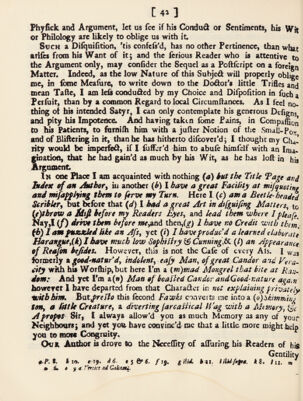 [ 42 ]
Physick and Argument, let us see if his Conduct or Sentiments, his Wit
or Philology are likely to oblige us with it.
SUCH a Disquisition, 'tis confess'd, has no other Pertinence, than what
arises from his Want of it; and the serious Reader who is attentive to
the Argument only, may consider the Sequel as a Postscript on a foreign
Matter. Indeed, as the low Nature of this Subject will properly oblige
me, in some Measure, to write down to the Doctor's little Trifles and
mean Taste, I am less conducted by my Choice and Disposition in such a
Persuit, than by a common Regard to local Circumstances. As I feel no-
thing of his intended Satyr, I can only contemplate his generous Designs,
and pity his Impotence. And having taken some Pains, in Compassion
to his Patients, to furnish him with a juster Notion of the Small-Pox,
and of Blistering in it, than he has hitherto discover'd; I thought my Cha-
rity would be imperfect, if I suffer'd him to abuse himself with an Ima-
gination, that he had gain'd as much by his Wit, as he has lost in his
Argument.
IN one Place I am acquainted with nothing (a) but the Title Page and
Index of an Author, in another (b) I have a great Facility at misquoting
and misapplying them to serve my Turn. Here I (c) am a Beetle-headed
Scribler, but before that (d) I had a great Art in disguising Matters, to
(e) throw a Mist before my Readers Eyes, and lead them where I please.
Nay, I (f) drive them before me, and then, (g) I have no Credit with them.
(h) I am puzzled like an Ass, yet (i) I have produc'd a learned elaborate
Harangue, (k) I have much low Sophistry & Cunning, & (l) an Appearance
of Reason besides. However, this is not the Case of every Ass. I was
formerly a good-natur'd, indolent, easy Man, of great Candor and Vera-
city with his Worship, but here I'm a (m) mad Mongrel that bite at Ran-
dom: And yet I'm a (n) Man of boasted Candor and Good-nature again
however I have departed from that Character in not explaining privately
with him. But presto the second Facetis converts me into a (o) Skimming-
ton, a little Creature, a diverting farcastical Wag with a Memory, &
A propos Sir, I always allow'd you as much Memory as any of your
Neighbours; and yet you have convinc'd me that a little more might help
you to more Congruity.
OUR Author is drove to the Necessity of assuring his Readers of his
Gentility